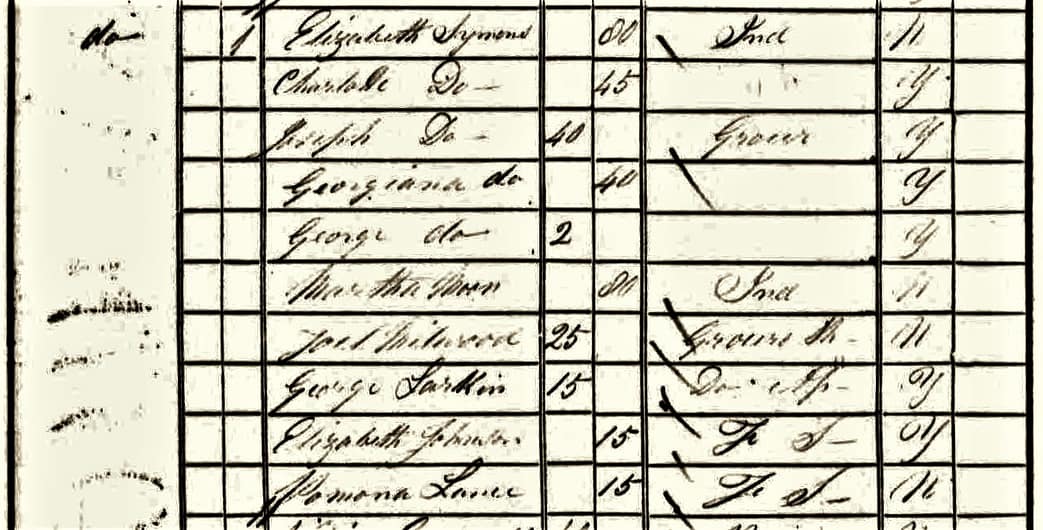 do 1 Elizabeth Symons 80 Ind N
Charlotte Do - 45 Y
Joseph Do - 40 Grocer Y
Georgiana do 40 Y
George do 2 Y
Martha Moon 80 Ind N
Joel 25 Grocers Sh - N
George Larkin 15 Do Ap - Y
Elizabeth Johnson 15 F S - Y
Pomona Lance 15 F S - N